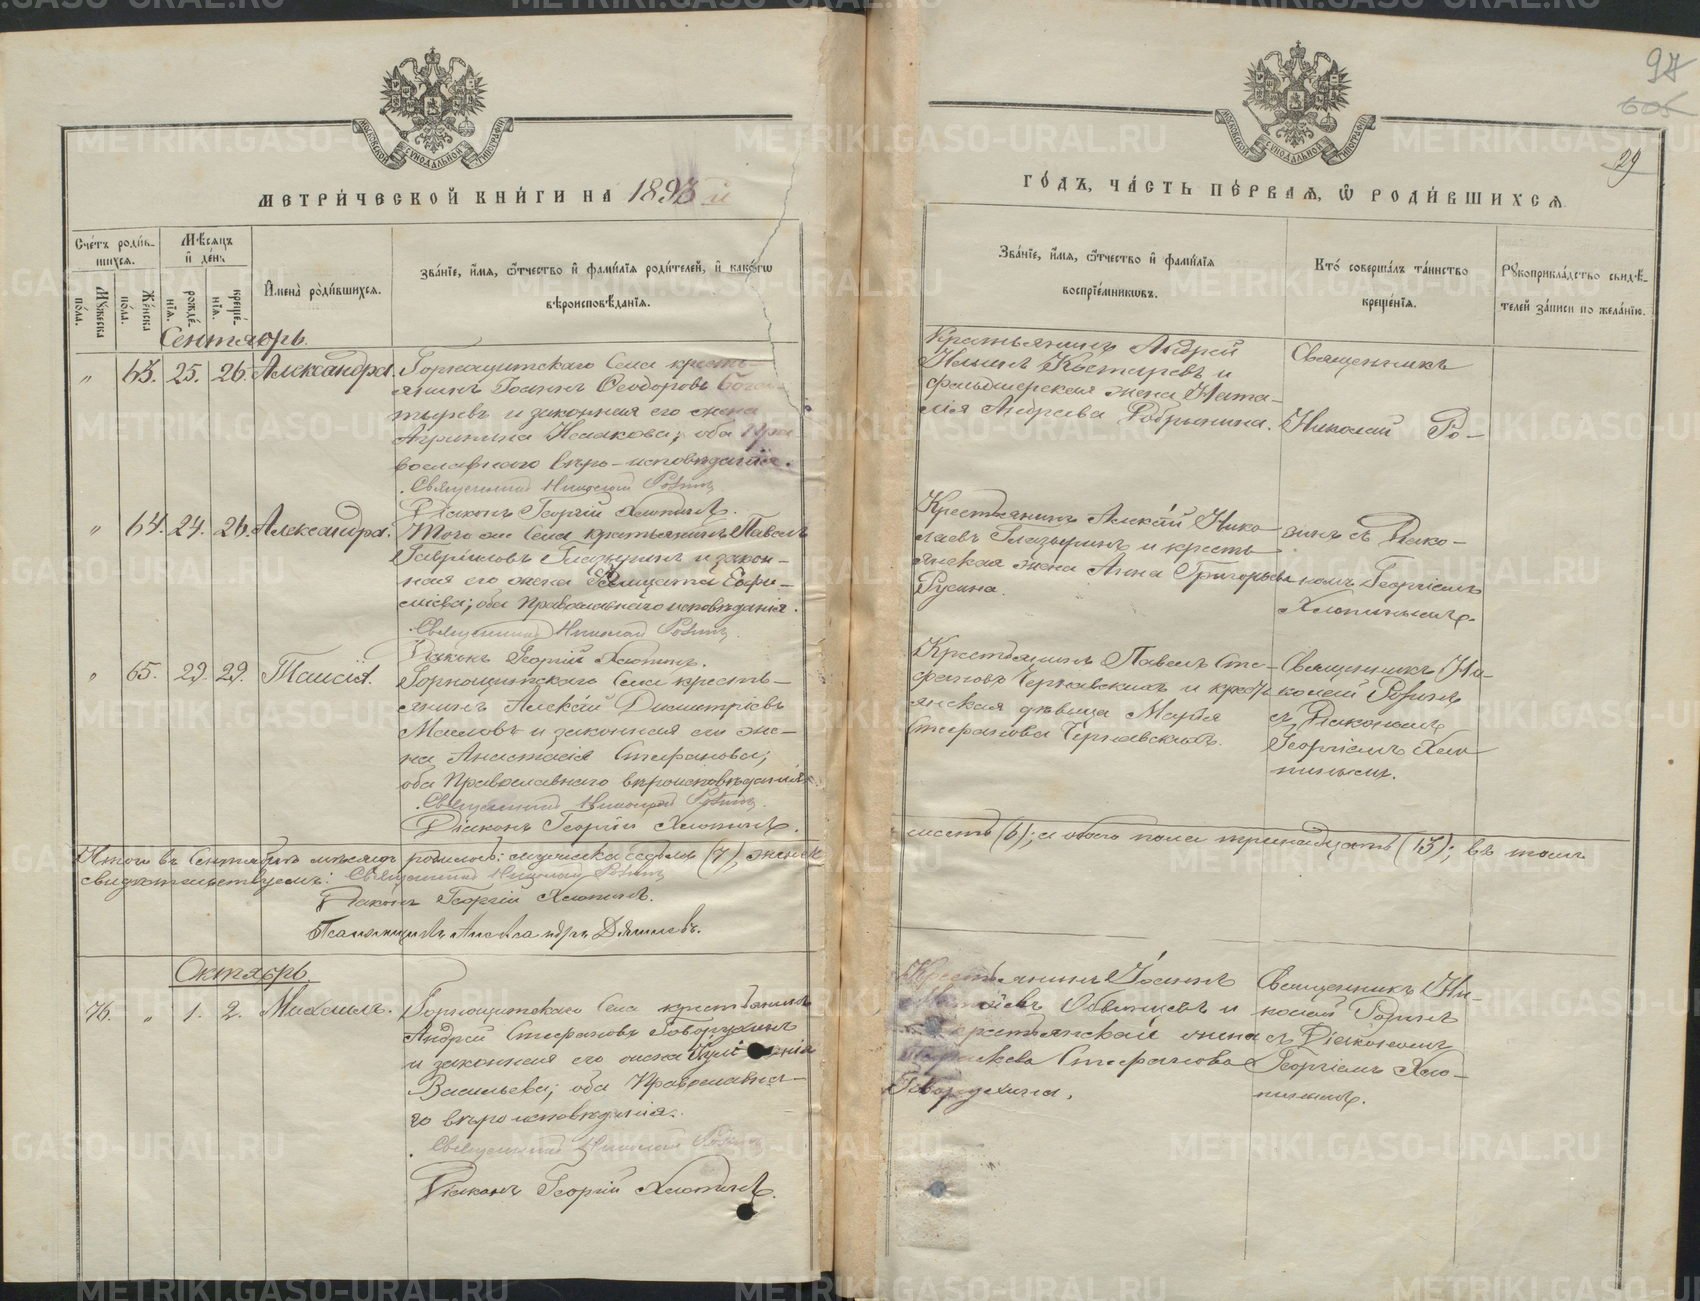 МЕТРИ́ЧЕСКОЙ КНИ́ГИ НА 1893 й
Сче́тъ роди́в-
шихся.
Мѣсяцъ
и де́нь
Имена̀ роди́вшихся.
Зва́нїе, и́мя, ѻ́тчество и фами́лїя роди́телей, и како́гѡ
вѣроисповѣ́данїя.
Му́жеска
по́ла.
Же́нска
по́ла.
рожде́-
нїя.
креще́-
нїя.
Сентябрь.
„ 63. 25. 26. Александра.
Горнощитскаго Села кресть-
янинъ Іоаннъ Ѳеодоровъ Бога-
тыревъ и законная его жена
Агрипина Исаакова; оба Пра
вославнаго вѣро-исповѣданія.
Священникъ Николай Родинъ
Діаконъ Георгій Хлопинъ.
„ 64. 24. 26. Александра.
Того же Села крестьянинъ Павелъ
Гавриловъ Глазыринъ и закон-
ная его жена Еѳи-
міева; оба Православнаго исповѣданія.
Священникъ Николай Родинъ.
Діаконъ Георгій Хлопинъ.
„ 65. 29. 29. Таисія.
Горнощитскаго Села кресть-
янинъ Алексѣй Димитріевъ
Масловъ и законная его же-
на Анастасія Стефанова;
оба Православнаго вѣроисповѣданія.
Священникъ Николай Родинъ.
Діаконъ Георгій Хлопинъ.
Итого въ Сентябрѣ мѣсяцѣ родилось: мужеска седмь (7), женск
свидѣтельствуемъ: Священникъ Николай Родинъ
Діаконъ Георгій Хлопинъ.
Псаломщикъ Александръ
Октябрь
76. „ 1. 2. Михаилъ.
Горнощитскаго Села крестьянинъ
Андрей Стефановъ Говорухинъ
и законная его жена
Васильева; оба Православна-
го вѣроисповѣданія.
Священникъ Николай Родинъ
Діаконъ Георгій Хлопинъ.
97
605
29
ГО́ДЪ, ЧА́СТЬ ПЕ́РВАЯ, Ѡ РОДИ́ВШИХСЯ
Зва́нїе, и́мя, ѻ́тчество и фами́лїя
воспрїе́мникѡвъ.
Кто̀ соверша́лъ та́инство
креще́нїя.
Рꙋкоприкла́дство свидѣ́-
телей за́писи по жела́нїю.
Крестьянинъ Андрей
Ильинъ Костыревъ и
фельдшерская жена Ната-
лія Андреева
Священникъ
Николай Ро-
Крестьянинъ Алексѣй Нико
лаевъ Глазыринъ и кресть
янская жена Анна Григорьева
Русина.
динъ съ Діако-
номъ Георгіемъ
Хлопинымъ.
Крестьянинъ Павелъ Сте-
фановъ Чернавскихъ и кресть
янская дѣвица Марѳа
Стефанова Чернавскихъ.
Священникъ Ни-
колай Родинъ
съ Діакономъ
Георгіемъ Хло
пинымъ.
шесть (6); а обоего пола тринадцать (13); въ томъ
Крестьянинъ Іоаннъ
и
крестьянская жена
Параскева Стефанова
Говорухина.
Священникъ Ни-
колай Родинъ
съ Діакономъ
Георгіемъ Хло-
пинымъ.
METRIKI.GASO-URAL.RU